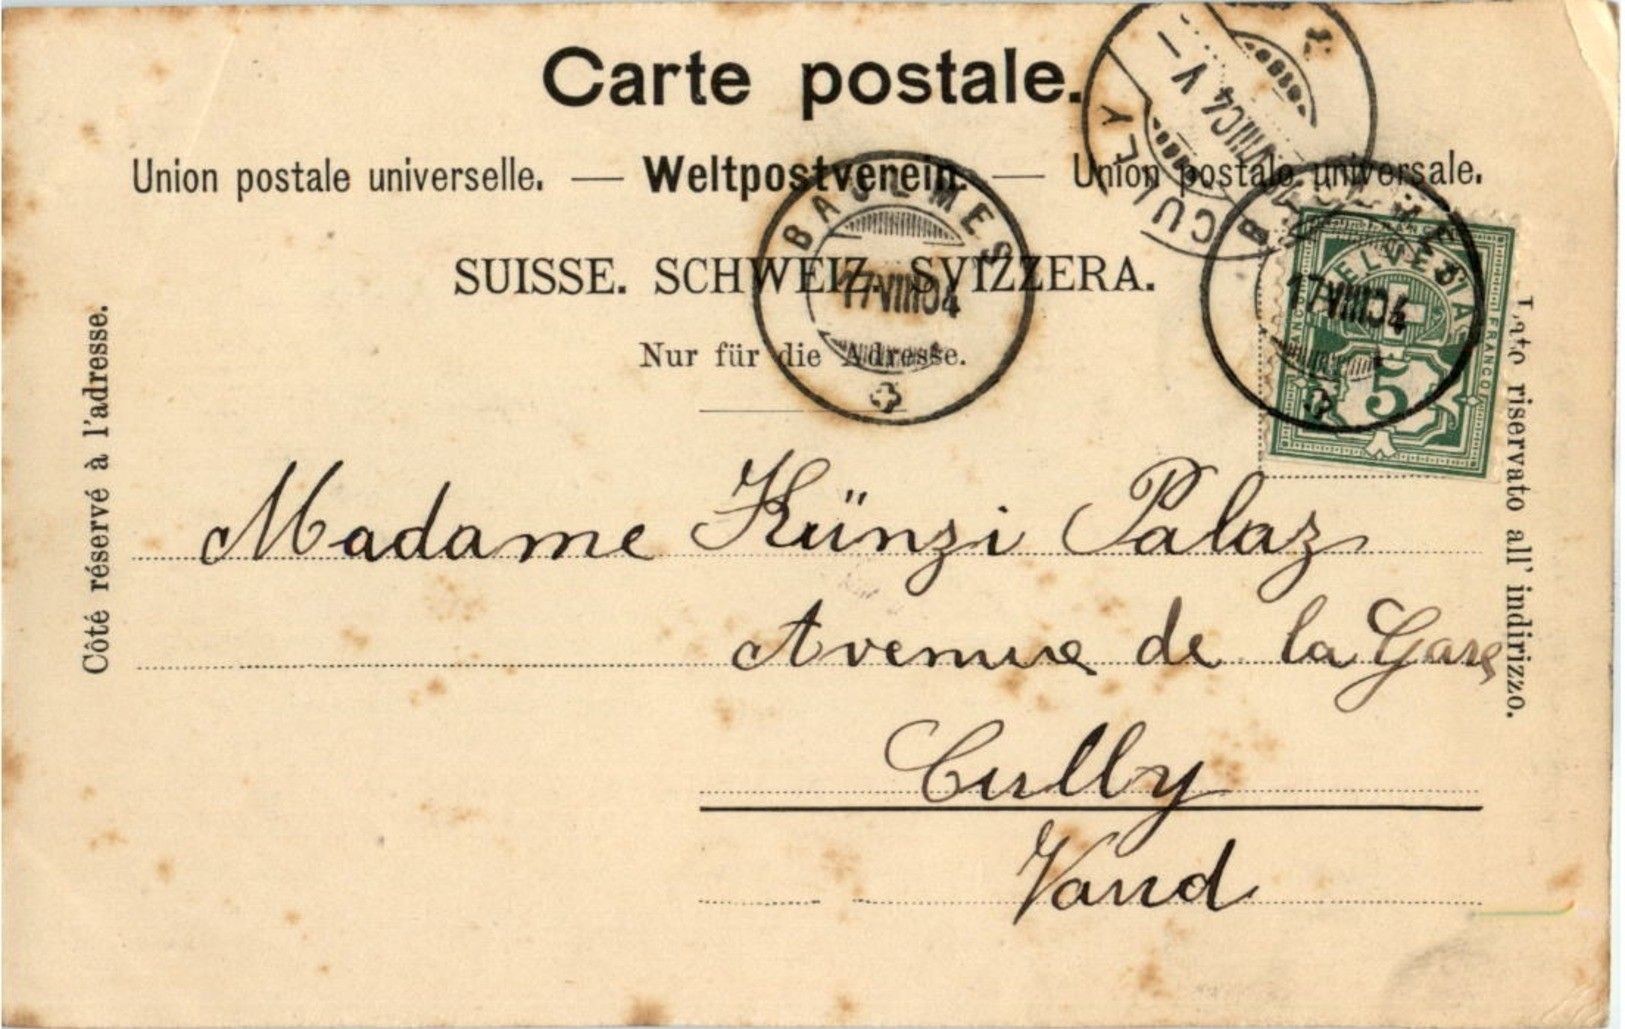 Carte postale.
Union postale universelle. — Weltpostverein. — Union postale universale.
SUISSE. SCHWEIZ. SVIZZERA.
Nur für die Adresse.
Côté réservé à l'adresse.
Lato riservato all' indirizzo.
CULLY
VIII04 V–
BAULMES
17 VIII 04
BAULMES
17 VIII 04
HELVETIA
FRANCO
FRANCO
5
Madame Künzi Palaz
Avenue de la Gare
Cully
Vaud